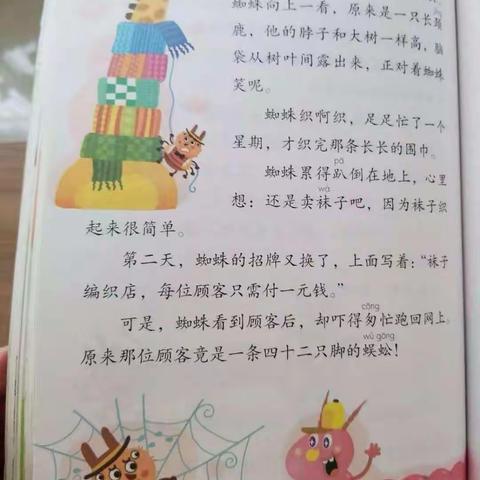 蜘蛛向上一看，原来是一只长颈
鹿，他的脖子和大树一样高，脑
袋从树叶间露出来，正对着蜘蛛
笑呢。
蜘蛛织啊织，足足忙了一个
星期，才织完那条长长的围巾。
pā
蜘蛛累得趴倒在地上，心里
wà
想：还是卖袜子吧，因为袜子织
起来很简单。
第二天，蜘蛛的招牌又换了，上面写着：“袜子
编织店，每位顾客只需付一元钱。”
cōng
可是，蜘蛛看到顾客后，却吓得匆忙跑回网上。
wú gōng
原来那位顾客竟是一条四十二只脚的蜈蚣！